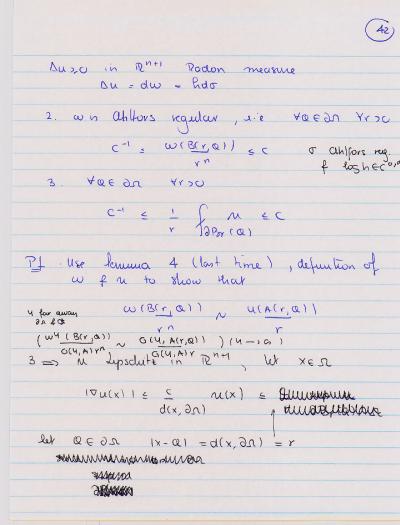 42
Δu≥0 in ℝⁿ⁺¹ Radon measure
Δu = dω = hdσ
2. ω is Ahlfors regular, i.e ∀Q∈∂Ω ∀r>0
C⁻¹ ≤ ω(B(r,Q))/rⁿ ≤ C
σ Ahlfors reg.
3. ∀Q∈∂Ω ∀r>0
C⁻¹ ≤ 1/r ⨍_{∂B₂r(Q)} u ≤ C
Pf. Use lemma 4 (last time), definition of
ω & u to show that
ω(B(r,Q))/rⁿ ~ u(A(r,Q))/r
(ω^y(B(r,Q))/G(y,A)rⁿ ~ G(y,A(r,Q))/G(y,A)r) (y→∞)
3 ⟹ u Lipschitz in ℝⁿ⁺¹, let x∈Ω
|∇u(x)| ≤ C/d(x,∂Ω) u(x) ≤
let Q∈∂Ω |x-Q| = d(x,∂Ω) = r